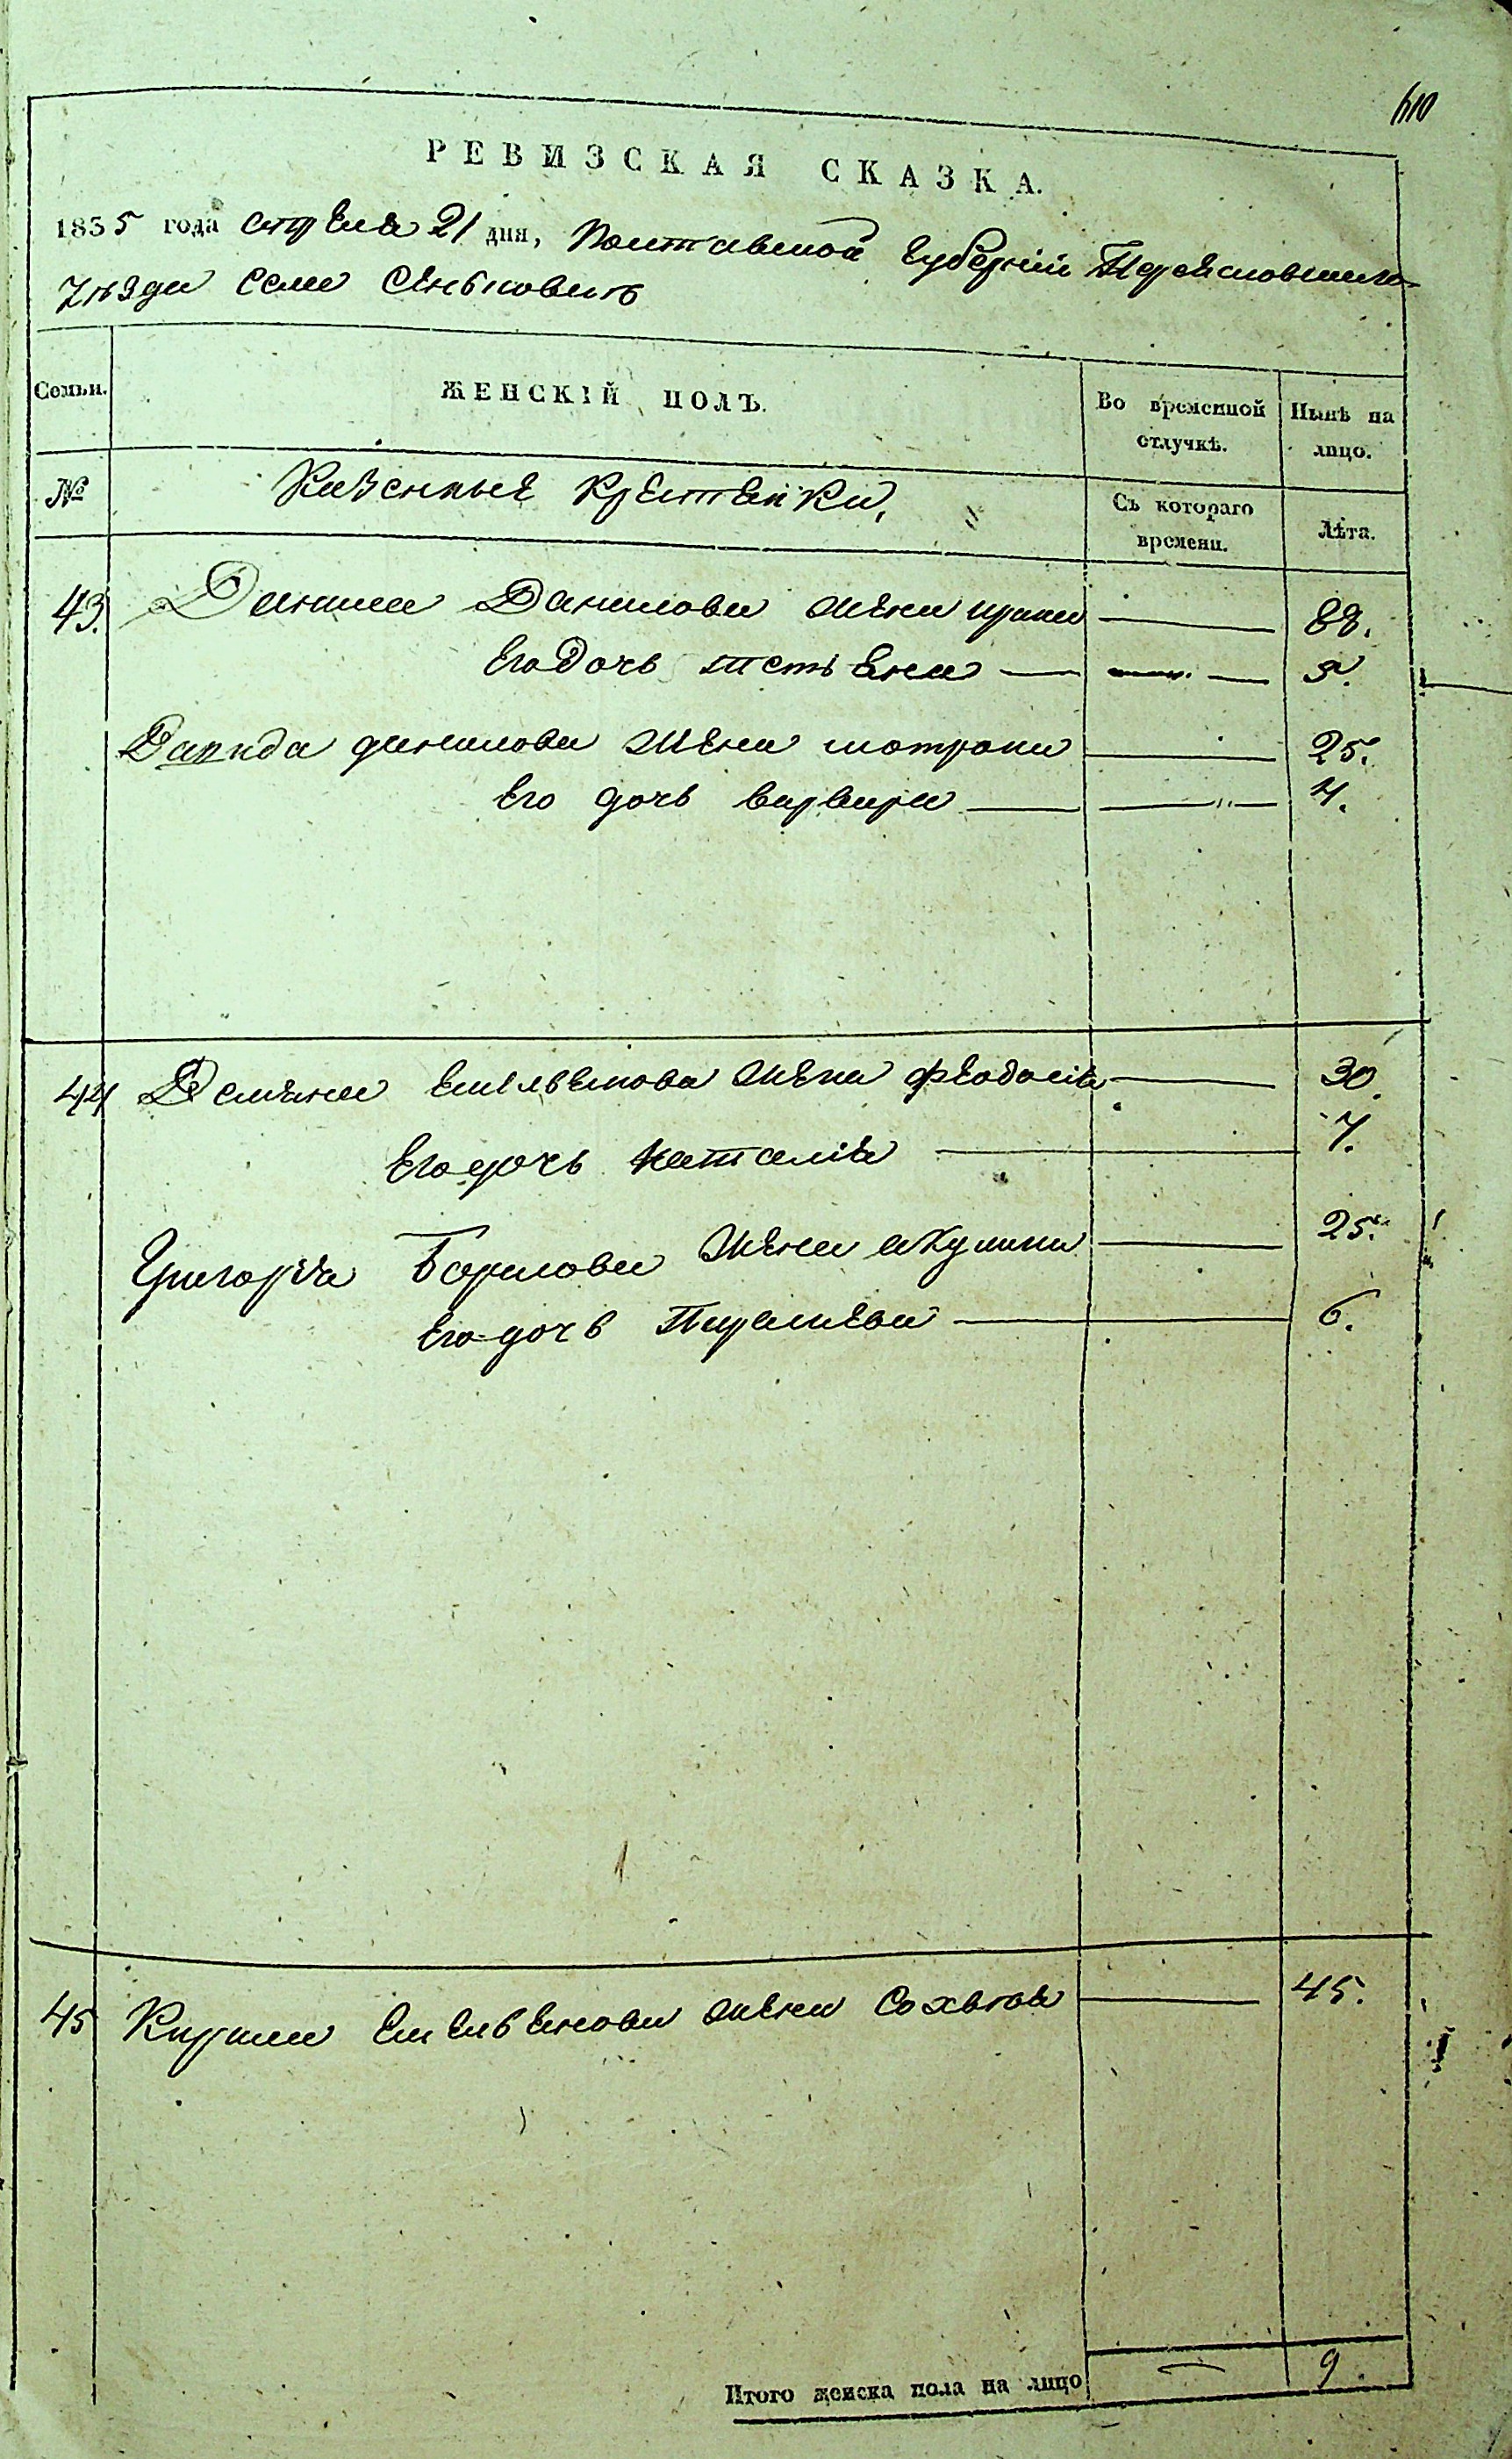 РЕВИЗСКАЯ СКАЗКА.
1835 года апреля 21 дня, Полтавской губерніи Переясловского
уѣзда села Сеньковъ
Семьи. ЖЕНСКІЙ ПОЛЪ. Во временной отлучкѣ. Нынѣ на лицо.
№ Казенные крестянки. Съ котораго времени. Лѣта.
43. Данила Данилова жена ирина
его дочь тетяна
Давида данилова жена мотрона 25.
его дочь варвара 4.
44 Демяна емельянова жена феодосія 30.
его дочь наталія 7.
Григорія Борисова жена акулина 25.
его дочь Параскева 6.
45 Кирила емельянова жена Сохвія 45.
Итого женска пола на лицо 9.